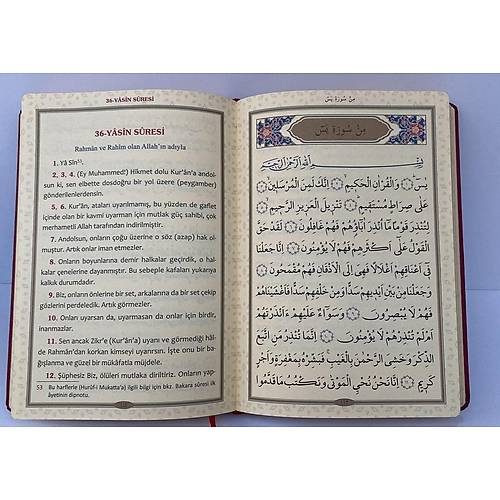 36-YÂSİN SÛRESİ
36-YÂSİN SÛRESİ
Rahmân ve Rahîm olan Allah'ın adıyla
1. Yâ Sîn⁵³.
2, 3, 4. (Ey Muhammed!) Hikmet dolu Kur'ân'a andol-
sun ki, sen elbette dosdoğru bir yol üzere (peygamber)
gönderilenlerdensin.
5, 6. Kur'ân, ataları uyarılmamış, bu yüzden de gaflet
içinde olan bir kavmi uyarman için mutlak güç sahibi, çok
merhametli Allah tarafından indirilmiştir.
7. Andolsun, onların çoğu üzerine o söz (azap) hak ol-
muştur. Artık onlar iman etmezler.
8. Onların boyunlarına demir halkalar geçirdik, o hal-
kalar çenelerine dayanmıştır. Bu sebeple kafaları yukarıya
kalkık durumdadır.
9. Biz, onların önlerine bir set, arkalarına da bir set çekip
gözlerini perdeledik. Artık görmezler.
10. Onları uyarsan da, uyarmasan da onlar için birdir,
inanmazlar.
11. Sen ancak Zikr'e (Kur'ân'a) uyanı ve görmediği hâl-
de Rahmân'dan korkan kimseyi uyarırsın. İşte onu bir ba-
ğışlanma ve güzel bir mükâfatla müjdele.
12. Şüphesiz Biz, ölüleri mutlaka diriltiriz. Onların yap-
53 Bu harflerle (Hurûf-i Mukatta'a) ilgili bilgi için bkz. Bakara sûresi ilk
âyetinin dipnotu.
مِنْ سُورَةِ يٰسٓ
مِنْ سُورَةِ يٰسٓ
بِسْمِ اللّٰهِ الرَّحْمٰنِ الرَّحِيمِ
يٰسٓ وَالْقُرْاٰنِ الْحَكِيمِ اِنَّكَ لَمِنَ الْمُرْسَلِينَ
عَلٰى صِرَاطٍ مُسْتَقِيمٍ تَنْزِيلَ الْعَزِيزِ الرَّحِيمِ
لِتُنْذِرَ قَوْمًا مَٓا اُنْذِرَ اٰبَٓاؤُ۬هُمْ فَهُمْ غَافِلُونَ لَقَدْ حَقَّ
الْقَوْلُ عَلٰٓى اَكْثَرِهِمْ فَهُمْ لَا يُؤْمِنُونَ اِنَّا جَعَلْنَا
فِٓي اَعْنَاقِهِمْ اَغْلَالًا فَهِيَ اِلَى الْاَذْقَانِ فَهُمْ مُقْمَحُونَ
وَجَعَلْنَا مِنْ بَيْنِ اَيْدِيهِمْ سَدًّا وَمِنْ خَلْفِهِمْ سَدًّا فَاَغْشَيْنَاهُمْ
فَهُمْ لَا يُبْصِرُونَ وَسَوَٓاءٌ عَلَيْهِمْ ءَاَنْذَرْتَهُمْ
اَمْ لَمْ تُنْذِرْهُمْ لَا يُؤْمِنُونَ اِنَّمَا تُنْذِرُ مَنِ اتَّبَعَ
الذِّكْرَ وَخَشِيَ الرَّحْمٰنَ بِالْغَيْبِ فَبَشِّرْهُ بِمَغْفِرَةٍ وَاَجْرٍ
كَرِيمٍ اِنَّا نَحْنُ نُحْيِ الْمَوْتٰى وَنَكْتُبُ مَا قَدَّمُوا